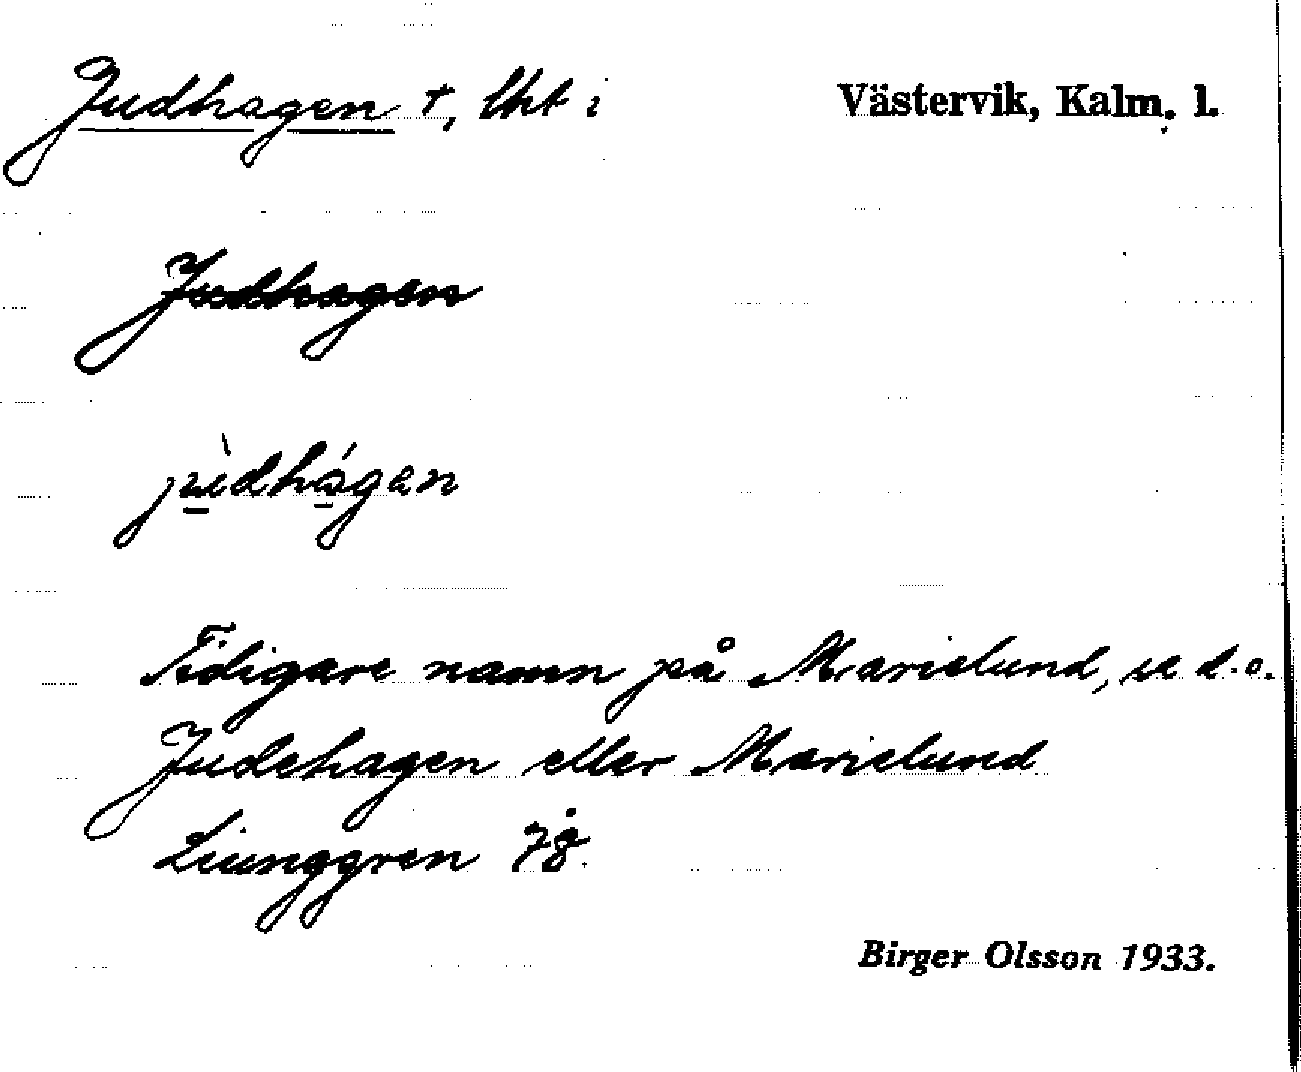 Judhagen †, lht i Västervik, Kalm. l.
Judhagen
jùdhágan
Tidigare namn på Marielund, se d.o.
Judehagen eller Marielund
Liunggren 78.
Birger Olsson 1933.